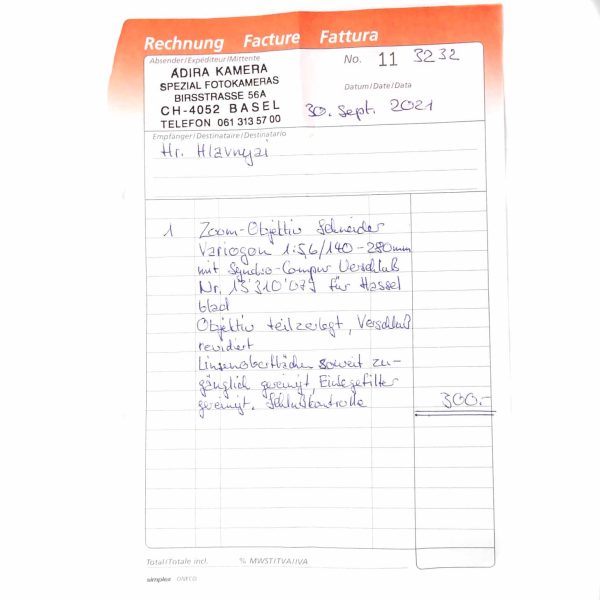 Rechnung Facture Fattura
Absender/Expéditeur/Mittente
No. 11 3232
ADIRA KAMERA
SPEZIAL FOTOKAMERAS
BIRSSTRASSE 56A
CH-4052 BASEL
TELEFON 061 313 57 00
Datum/Date/Data
30. Sept. 2021
Empfänger/Destinataire/Destinatario
Hr. Hlavnyai
1 Zoom-Objektiv Schneider
Variogon 1:5,6/140-280mm
mit Synchro-Compur Verschluß
Nr. 13'310'077 für Hassel
blad
Objektiv teilzerlegt, Verschluß
revidiert
Linsenoberfläche soweit zu-
gänglich gereinigt, Einlegefilter
gereinigt. Schlußkontrolle 300.-
Total/Totale incl. % MWST/TVA/IVA
simplex ONECO